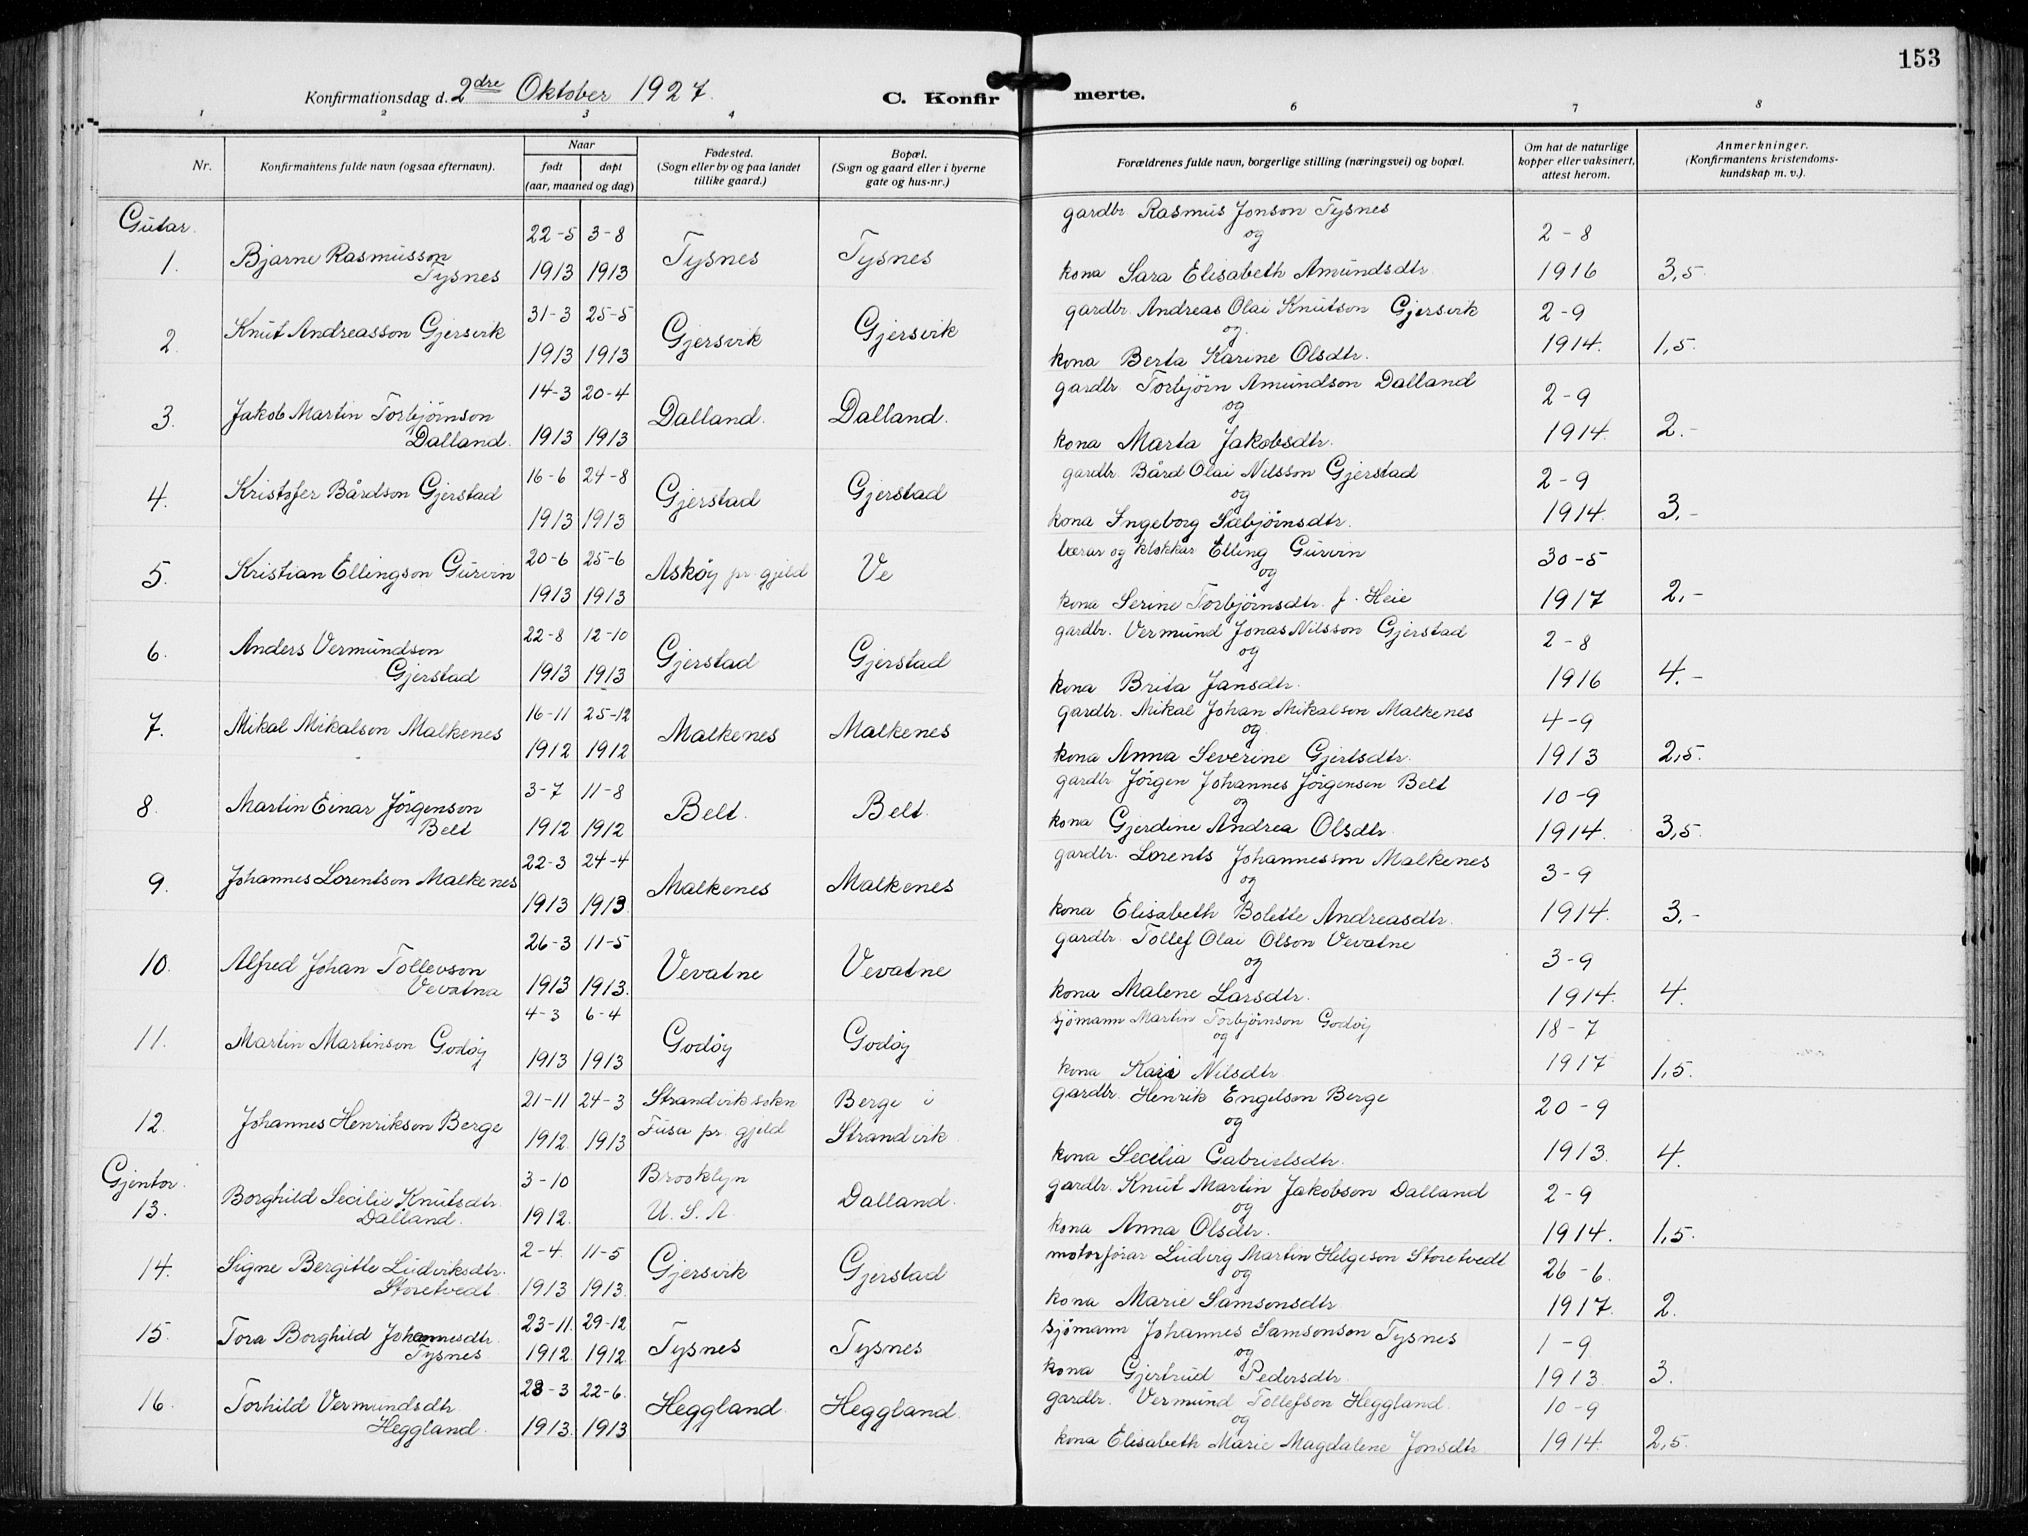 153
Konfirmationsdag d. 2dre Oktober 1927. C. Konfirmerte.
1 2 3 4 6 7 8
Nr. Konfirmantens fulde navn (ogsaa efternavn). Naar født døpt (aar, maaned og dag) Fødested. (Sogn eller by og paa landet tillike gaard.) Bopæl. (Sogn og gaard eller i byerne gate og hus-nr.) Forældrenes fulde navn, borgerlige stilling (næringsvei) og bopæl. Om hat de naturlige kopper eller vaksinert, attest herom. Anmerkninger. (Konfirmantens kristendomskundskap m. v.).
Gutar.
1. Bjarne Rasmusson Tysnes 22-5 1913 3-8 1913 Tysnes Tysnes gardbr Rasmus Jonson Tysnes og kona Sara Elisabeth Amundsdtr. 2-8 1916 3,5
2. Knut Andreasson Gjersvik 31-3 1913 25-5 1913 Gjersvik Gjersvik gardbr. Andreas Olai Knutson Gjersvik og kona Berta Karine Olsdtr. 2-9 1914. 1,5.
3. Jakob Martin Torbjørnson Dalland. 14-3 1913 20-4 1913 Dalland. Dalland. gardbr. Torbjørn Amundson Dalland og kona Marta Jakobsdtr. 2-9 1914. 2.-
4. Kristofer Bårdson Gjerstad 16-6 1913 24-8 1913 Gjerstad Gjerstad gardbr. Bård Olai Nilsson Gjerstad og kona Ingeborg Sæbjørnsdtr. 2-9 1914. 3.-
5. Kristian Ellingson Gurvin 20-6 1913 25-6 1913 Askøy pr. gjeld Ve lærar og klokkar Elling Gurvin og kona Serine Torbjørnsdtr. f. Heie 30-5 1917 2.-
6. Anders Vermundson Gjerstad 22-8 1913 12-10 1913 Gjerstad Gjerstad gardbr. Vermund Jonas Nilsson Gjerstad og kona Brita Jansdtr. 2-8 1916 4.-
7. Mikal Mikalson Malkenes 16-11 1912 25-12 1912 Malkenes Malkenes gardbr. Mikal Johan Mikalson Malkenes og kona Anna Severine Gjertsdtr. 4-9 1913 2,5.
8. Martin Einar Jørgenson Belt 3-7 1912 11-8 1912 Belt. Belt. gardbr Jørgen Johannes Jørgenson Belt og kona Gjerdine Andrea Olsdtr. 10-9 1914. 3,5.
9. Johannes Lorentson Malkenes 22-3 1913 24-4 1913 Malkenes Malkenes gardbr. Lorents Johannesson Malkenes og kona Elisabeth Bolette Andreasdtr. 3-9 1914. 3.-
10. Alfred Johan Tollevson Vevatna 26-3 1913 11-5 1913. Vevatne Vevatne gardbr. Tollef Olai Olson Vevatne og kona Malene Larsdtr. 3-9 1914. 4.
11. Martin Martinson Godøy 4-3 1913 6-4 1913 Godøy Godøy sjømann Martin Torbjørnson Godøy og kona Kari Nilsdtr. 18-7 1917 1,5.
12. Johannes Henrikson Berge 21-11 1912 24-3 1913 Strandvik sokn Fusa pr. gjeld Berge i Strandvik. gardbr. Henrik Engelson Berge og kona Secilia Gabrielsdtr. 20-9 1913. 4.
Gjentor.
13. Borghild Secilie Knutsdtr. Dalland. 3-10 1912. Brooklyn U. S. A. Dalland. gardbr. Knut Martin Jakobson Dalland og kona Anna Olsdtr. 2-9 1914. 1,5.
14. Signe Bergitte Ludviksdtr. Storetvedt 2-4. 1913 11-5 1913. Gjersvik Gjerstad motorførar Ludvig Martin Helgeson Storetvedt og kona Marie Samsonsdtr 26-6. 1917. 2.
15. Tora Borghild Johannesdtr. Tysnes 23-11. 1912 29-12 1912. Tysnes Tysnes sjømann Johannes Samsonson Tysnes og kona Gjertrud Pedersdtr. 1-9 1913. 3.
16. Torhild Vermundsdtr. Heggland. 28-3 1913. 22-6. 1913 Heggland. Heggland. gardbr. Vermund Tollefson Heggland. og kona Elisabeth Marie Magdalene Jonsdtr 10-9 1914. 2,5.